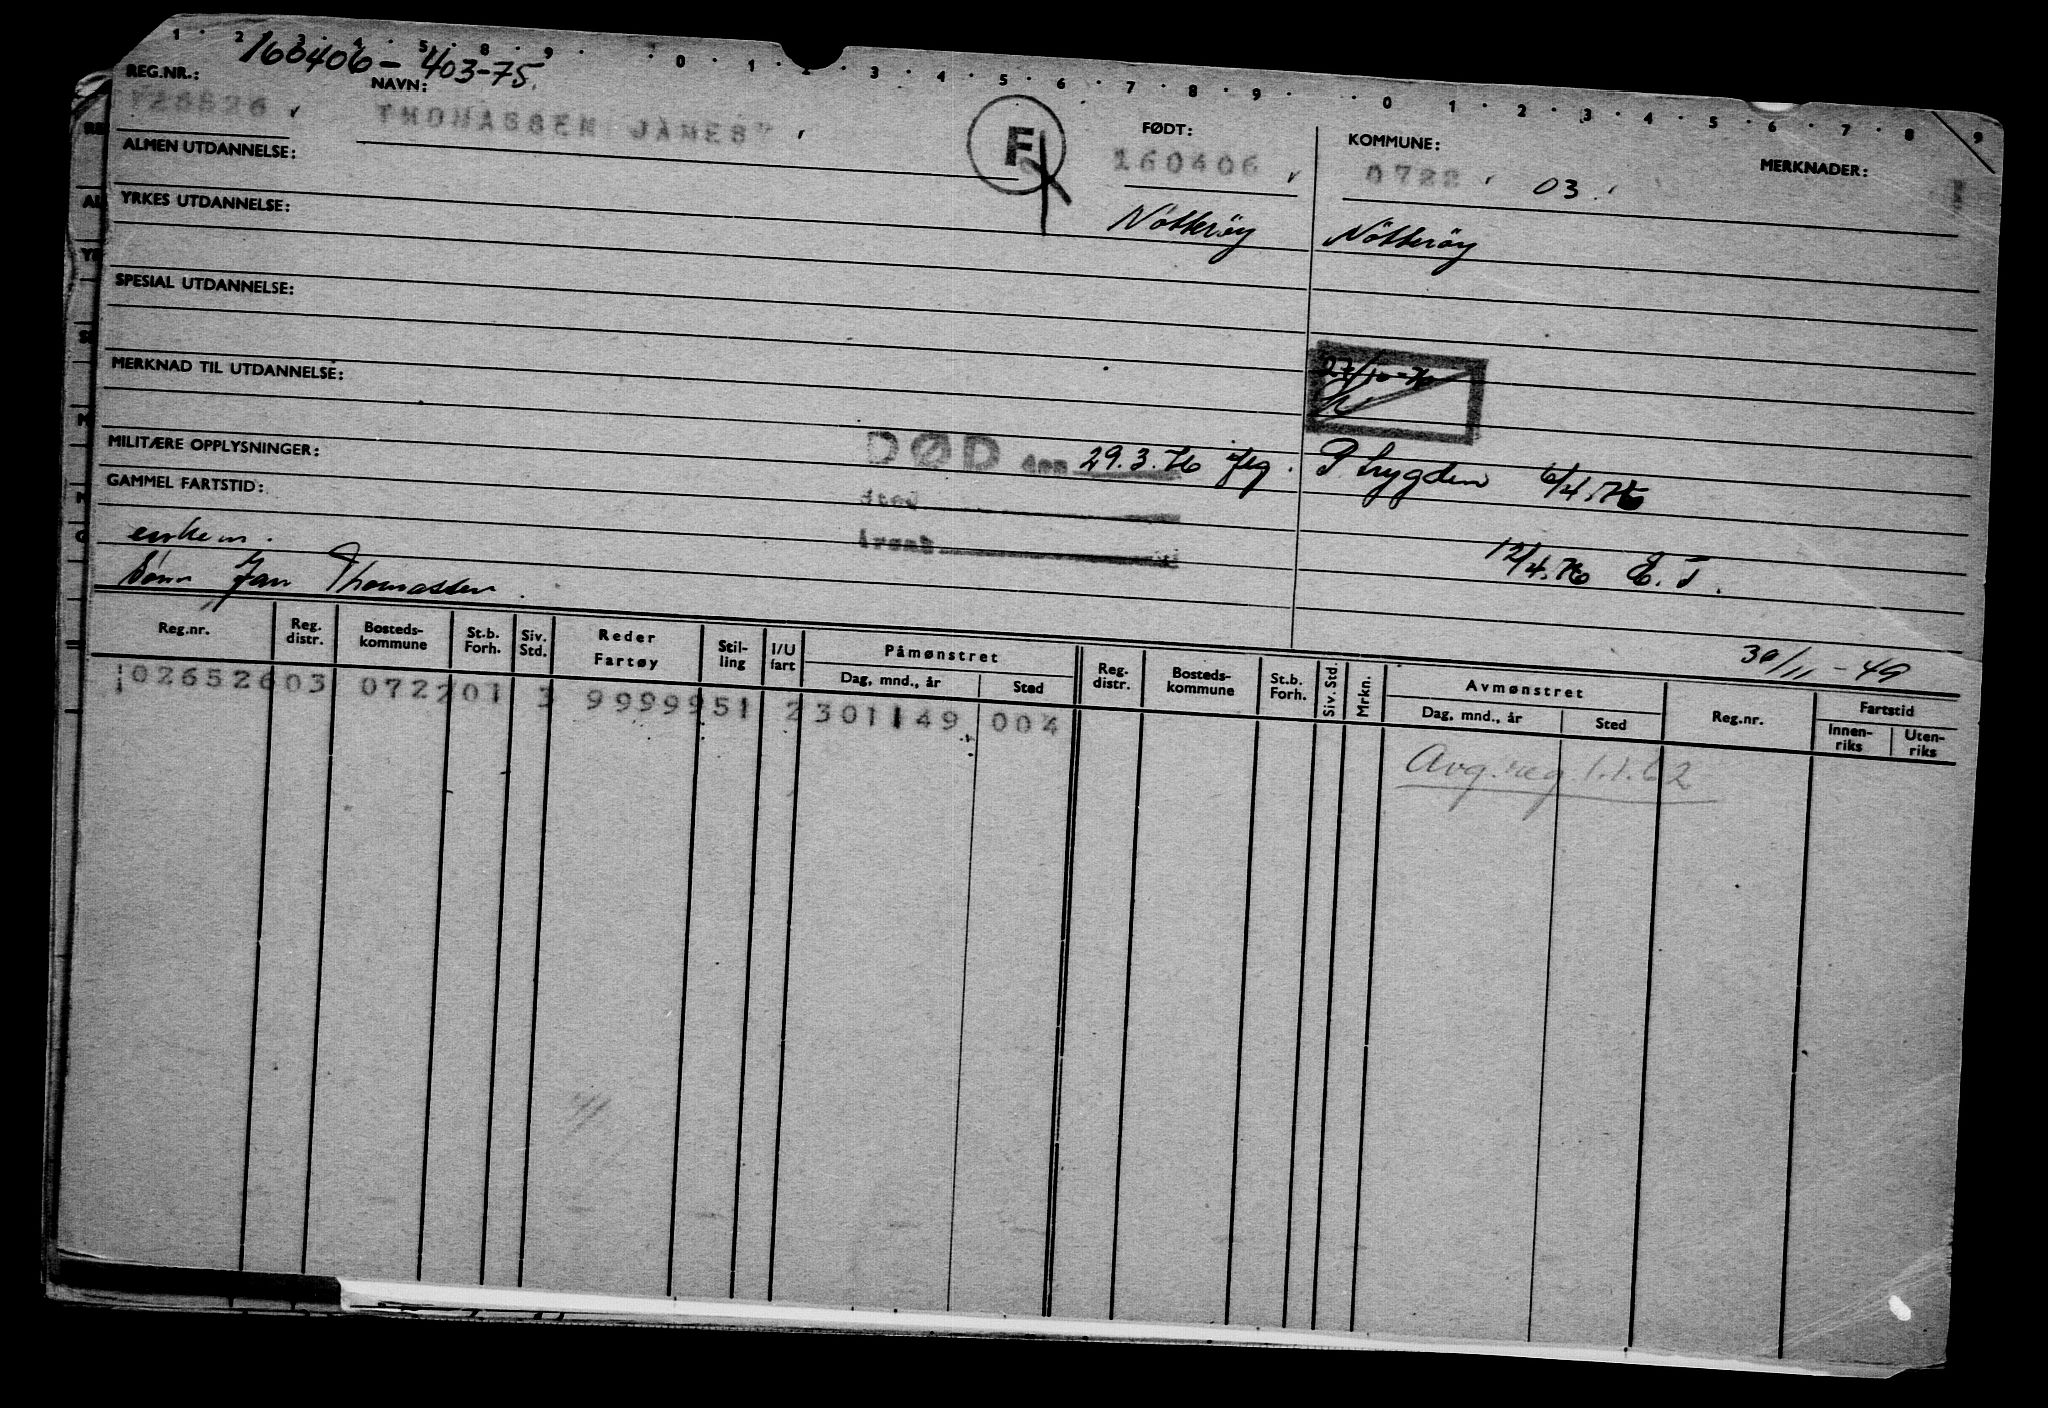 1 2 3 4 5 8 9 0 1 2 3 4 5 6 7 8 9 0 1 2 3 4 5 6 7 8 9
160406-403-75.
REG.NR.: NAVN: FØDT: KOMMUNE: MERKNADER:
THOMASSEN JAMES F 160406 0722 03
ALMEN UTDANNELSE:
YRKES UTDANNELSE: Nötteröy Nötteröy
SPESIAL UTDANNELSE:
MERKNAD TIL UTDANNELSE: 27/10-76
MILITÆRE OPPLYSNINGER: DØD den 29.3.76 P.trygden 6/4.76
GAMMEL FARTSTID: Sted
enken. Årsak 12/4.76 E.T.
Sønn Jan Thomassen.
30/11-49
Reg.nr. Reg. distr. Bosteds-kommune St.b. Forh. Siv. Std. Reder Fartøy Stil-ling I/U fart Påmønstret Dag, mnd., år Sted Reg. distr. Bosteds-kommune St.b. Forh. Siv. Std. Mrkn. Avmønstret Dag, mnd., år Sted Reg.nr. Fartstid Innen-riks Uten-riks
026526 03 0722 01 3 99999 51 2 301149 004
Avg.reg.1.1.62